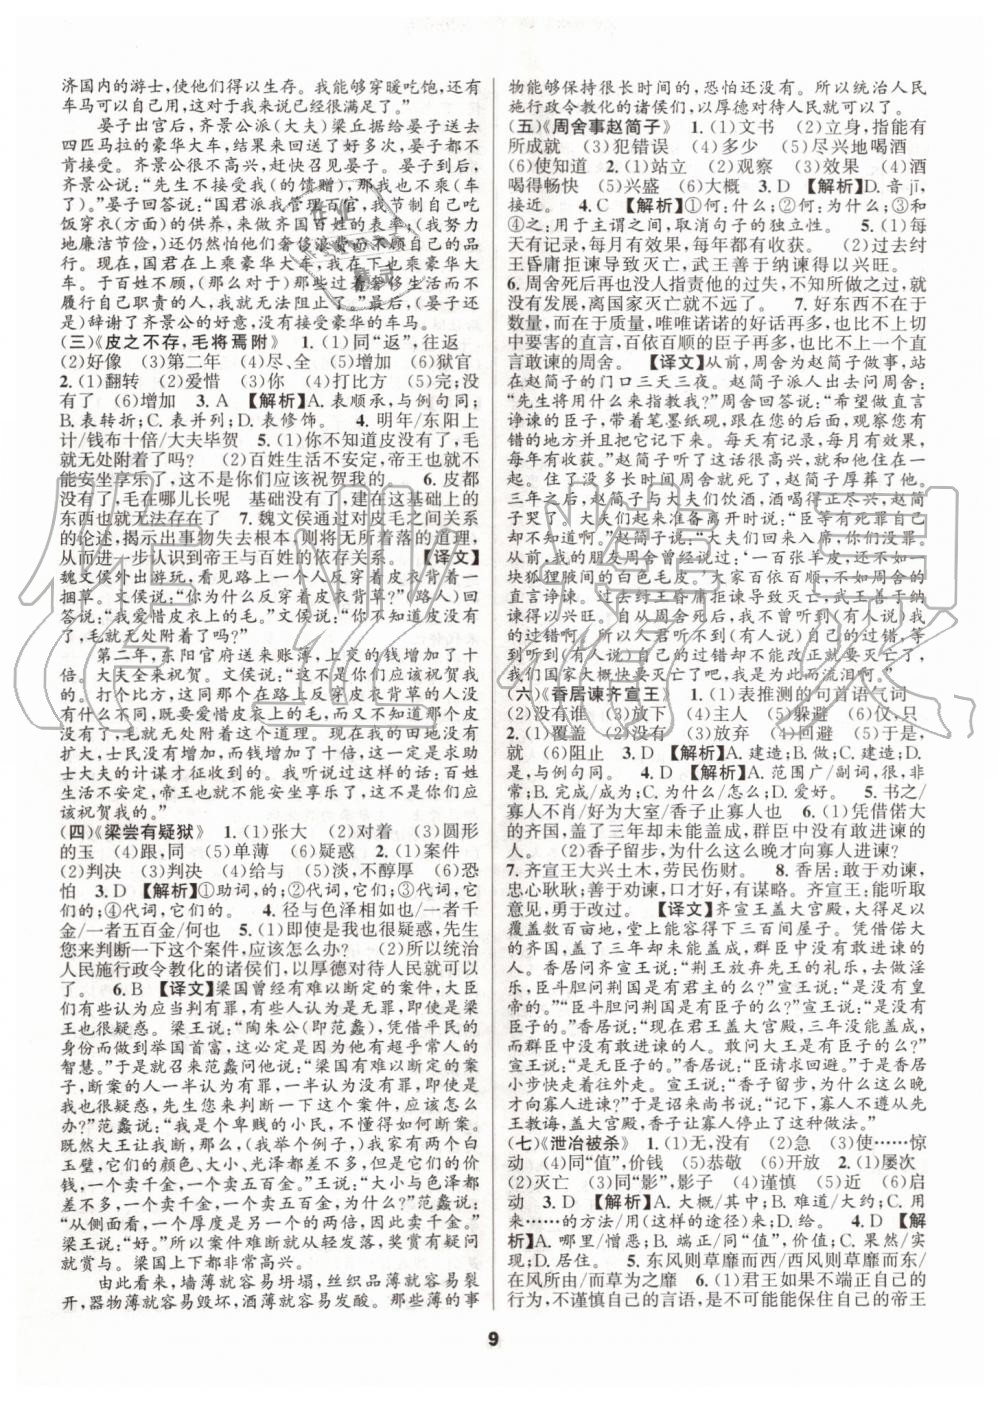 济国内的游士,使他们得以生存。我能够穿暖吃饱,还有
车马可以自己用,这对于我来说已经很满足了。”
晏子出宫后,齐景公派(大夫)梁丘据给晏子送去
四匹马拉的豪华大车,结果来回送了好多次,晏子都不
肯接受。齐景公很不高兴,赶快召见晏子。晏子到后,
齐景公说:“先生不接受我(的馈赠),我也不乘(车
了)。”晏子回答说:“国君派我管理百官,我节制自己吃
饭穿衣(方面)的供养,来做齐国人的表率,(我努力
地廉洁节俭),仍然恐怕他们会奢侈浪费而不顾自己的品
行。现在,国君在上乘豪华大车,我在下也乘豪华大车。
于百姓不顾,(那么)对那些过着奢侈生活而不履行
自己职责的人,我就没有资格去制止了。”最后,(晏子还
是)辞谢了齐景公的好意,没有接受豪华的车马。
(三)《皮之不存,毛将焉附》 1.(1)同“返”,往返
(2)好像 (3)第二年 (4)尽、全 (5)增加 (6)狱官
2.(1)翻转 (2)爱惜 (3)你 (4)打比方 (5)完;没
有了 (6)增加 3.A 【解析】A.表顺承,与例句同;
B.表转折;C.表并列;D.表修饰。 4.明年/东阳上
计/钱布十倍/大夫毕贺 5.(1)你不知道皮没有了,毛
就无处附着了吗? (2)百姓生活不安定,帝王也就不
能安坐享乐了,这不是你们应该祝贺我的。 6.皮都
没有了,毛在哪儿长呢 基础没有了,建在这基础上的
东西也就无法存在了 7.魏文侯通过对皮毛之间关系
的论述,揭示出事物失去根本,则将无所着落的道理,
从而进一步认识到帝王与百姓的依存关系。 【译文】
魏文侯外出游玩,看见路上一个人反穿着皮衣背着一
捆草。文侯说:“你为什么反穿着皮衣背草?”(路人)回
答说:“我爱惜皮衣上的毛。”文侯说:“你不知道皮没有
了,毛就无处附着了吗?”
第二年,东阳官府送来账簿,上交的钱增加了十
倍。大夫全来祝贺。文侯说:“这不是你们应该祝贺我
的。打个比方,这同那个在路上反穿皮衣背草的人没
有什么不同,既要爱惜皮衣上的毛,而又不知道那个皮
没有了,毛就无处附着这个道理。现在我的田地没有
扩大,士民没有增加,而钱增加了十倍,这一定是求助
士大夫的计谋才征收到的。我听到过这样的话:百姓
生活不安定,帝王也就不能安坐享乐了,这不是你们应
该祝贺我的。”
(四)《梁尝有疑狱》 1.(1)张大 (2)对着 (3)圆形
的玉 (4)跟,同 (5)单薄 (6)疑惑 2.(1)案件
(2)判决 (3)判决 (4)给与 (5)淡,不醇厚 (6)恐
怕 3.D 【解析】①助词,的;②代词,它;③代词,它
们的;④代词,它们的。 4.径与色泽相如也/一者千
金/一者五百金/何也 5.(1)即使是我也很疑惑,先生
您来判断一下这个案件,应该怎么办? (2)所以统治
人民施行政令教化的诸侯们,以厚德对待人民就可以
了。 6.B 【译文】梁国曾经有难以断定的案件,大臣
们有些人认为应当判有罪,有些人认为是无罪,即使是
梁王也很疑惑。梁王说:“陶朱公(即范蠡),凭借平民的
身份而做到举国首富,这必定是因为他有超乎常人的
智慧。”于是就召来范蠡问他说:“梁国有难以断定的案
子,断案的人一半认为有罪,一半认为无罪,即使是我
也很疑惑,先生您来判断一下这个案件,应该怎么
办?”范蠡说:“我是个卑贱的小民,不懂得如何断案。
既然大王让我断,(我举个例子,)我家有两个白
玉璧,它们的颜色、大小、光泽都差不多,但它们的价
钱,一个卖千金,一个卖五百金。”王说:“大小与色泽都
差不多,一个卖千金,一个卖五百金,为什么?”范蠡说:
“从侧面看,一个厚度是另一个的两倍,因此卖千金。”
梁王说:“好。”所以案件难以断定就免除,奖赏有疑问
就赏与。梁国上下都非常高兴。
由此看来,墙薄就容易坍塌,丝织品薄就容易裂
开,器物薄就容易毁坏,酒薄就容易发酸。那些薄的事
物能够保持很长时间的,恐怕还没有。所以统治人民
施行政令教化的诸侯们,以厚德对待人民就可以了。
(五)《周舍事赵简子》 1.(1)文书 (2)立身,指能有
所成就 (3)犯错误 (4)多少 (5)尽兴地喝酒
(6)使知道 2.(1)站立 (2)观察 (3)效果 (4)酒
喝得畅快 (5)兴盛 (6)大概 3.D 【解析】D.音jī,
接近。 4.C 【解析】①何:什么;②何:为什么;③和
④之:用于主谓之间,取消句子的独立性。 5.(1)每
天有记录,每月有效果,每年都有收获。 (2)过去纣
王昏庸拒谏导致灭亡,武王善于纳谏得以兴旺。
6.周舍死后再也没人指责他的过失,不知过错,国家就
没有发展,离国家灭亡就不远了。 7.好东西不在于
数量,而在于质量,唯唯诺诺的好话再多,也比不上切
中要害的直言,百依百顺的臣子再多,也比不上一个直言
敢谏的周舍。 【译文】从前,周舍为赵简子做事,站在
赵简子的门口三天三夜。赵简子派人出去问周舍:
“先生将用什么来指教我?”周舍回答说:“希望做直言
诤谏的臣子,带着笔墨纸砚,跟在您的后面,观察您有
错的地方并且把它记下来。每天有记录,每月有效果,
每年都有收获。”赵简子听了这话很高兴,就和他住在一
起。住了没多长时间周舍就死了,赵简子厚葬了他。
三年之后,赵简子与大夫们喝酒,酒喝得畅快时,赵简
子哭了。大夫们起来准备离开时说:“臣等有死罪自己
却不知道。”赵简子说:“大夫们回来入席,你们没有罪。
从前,我的朋友周舍曾经说过:‘一百张羊皮,还不如一
块狐狸腋间的白色毛皮。’大家百依百顺,不如周舍的
直言诤谏。过去纣王昏庸拒谏导致灭亡,武王善于纳
谏得以兴旺。自从周舍死后,我不曾听到(有人说)我
的过错啊。所以人君不听到(有人说)自己的过错,等
到听到(有人说)自己的过错却不改正的就会灭亡啊。
我们国家大概快要灭亡了吧,我为此而流泪啊。”
(六)《香居谏齐宣王》 1.(1)表推测的句首语气词
(2)没有谁 (3)放下 (4)主人 (5)躲避 (6)仅,只
2.(1)覆盖 (2)没有 (3)放弃 (4)回避 (5)于是,
就 (6)阻止 3.D 【解析】A.建造;B.做;C.建造;D.
是,与例句同。 4.D 【解析】A.范围广/副词,很,非
常;B.完成/成为;C.为什么/怎么;D.爱好。 5.书之/
寡人不肖/好为大室/香子止寡人也 6.(1)凭借偌大
的齐国,盖了三年却未能盖成,群臣中没有敢进谏的
人。 (2)香子留步,为什么这么晚才向寡人进谏?
7.齐宣王大兴土木,劳民伤财。 8.香居:敢于劝谏,
忠心耿耿;善于劝谏,口才好,有谋略。齐宣王:能听取
意见,勇于改过。 【译文】齐宣王盖大宫殿,大得足以
覆盖数百亩地,堂上能容得下三百间屋子。凭借偌大的
齐国,盖了三年却未能盖成,群臣中没有敢进谏的
人。香居问齐宣王说:“荆王放弃先王的礼乐,去喜欢
淫乐,敢问荆国是有君主的么?”宣王说:“这是没有皇
帝的。”“臣斗胆问荆国是有臣子的么?”宣王说:“没有
臣子的。”香居说:“现在君王盖大宫殿,三年没能盖成,
而群臣中没有敢进谏的人。敢问大王是有臣子的么?”
宣王说:“没有臣子的。”香居说:“臣请求回避。”于是香居
小步快走着往外走。宣王说:“香子留步,为什么这么晚
才向寡人进谏?”于是召来尚书说:“记下,寡人不遵从先
王教诲,喜欢盖大宫殿,香子让寡人停止了这种做法。”
(七)《泄冶被杀》 1.(1)无,没有 (2)急 (3)使……惊
动 (4)同“值”,价钱 (5)恭敬 (6)开放 2.(1)屡次
(2)灭亡 (3)同“影”,影子 (4)谨慎 (5)近 (6)启
动 3.D 【解析】A.大概/其中;B.难道/大约;C.用
来……的方法/用(这样的途径)来;D.给。 4.D 【解
析】A.哪里/想;B.端正/同“值”,价值;C.果然/实
现;D.居住。 5.东风则草靡而西/西风则草靡而东/
在风所由/而草为之靡 6.(1)君王如果不端正自己的
行为,不谨慎自己的言语,是不可能能保住自己的帝王
9